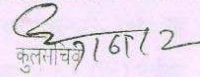 9/6/12
कुलसचिव